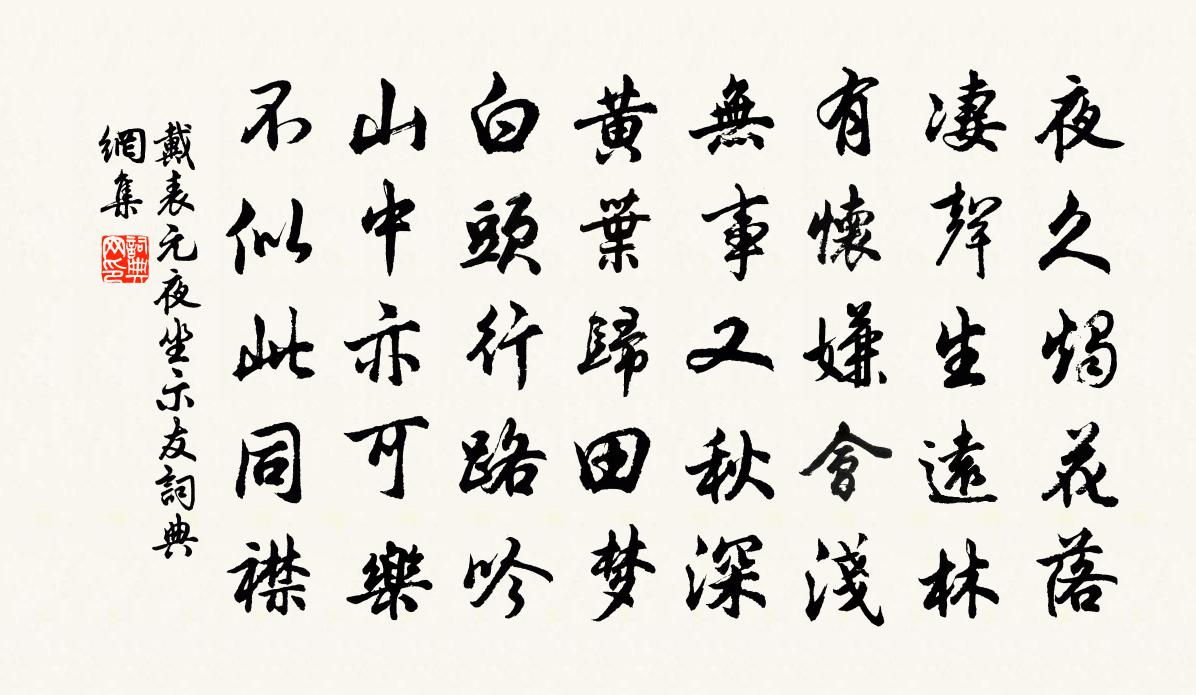 夜久燭花落
淒聲生遠林
有懷嫌會淺
無事又秋深
黃葉歸田夢
白頭行路吟
山中亦可樂
不似此同襟
戴表元夜坐示友詞典
網集
詞典
网印